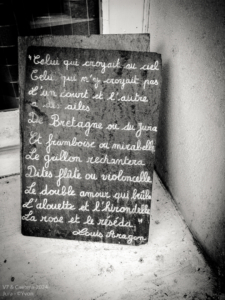 "Celui qui croyait au ciel
Celui qui n'y croyait pas
l'un court et l'autre
a des ailes
De Bretagne ou du Jura
Et framboise ou mirabelle
Le grillon rechantera
Dites flûte ou violoncelle
Le double amour qui brûle
L'alouette et l'hirondelle
La rose et le réséda,"
Louis Aragon